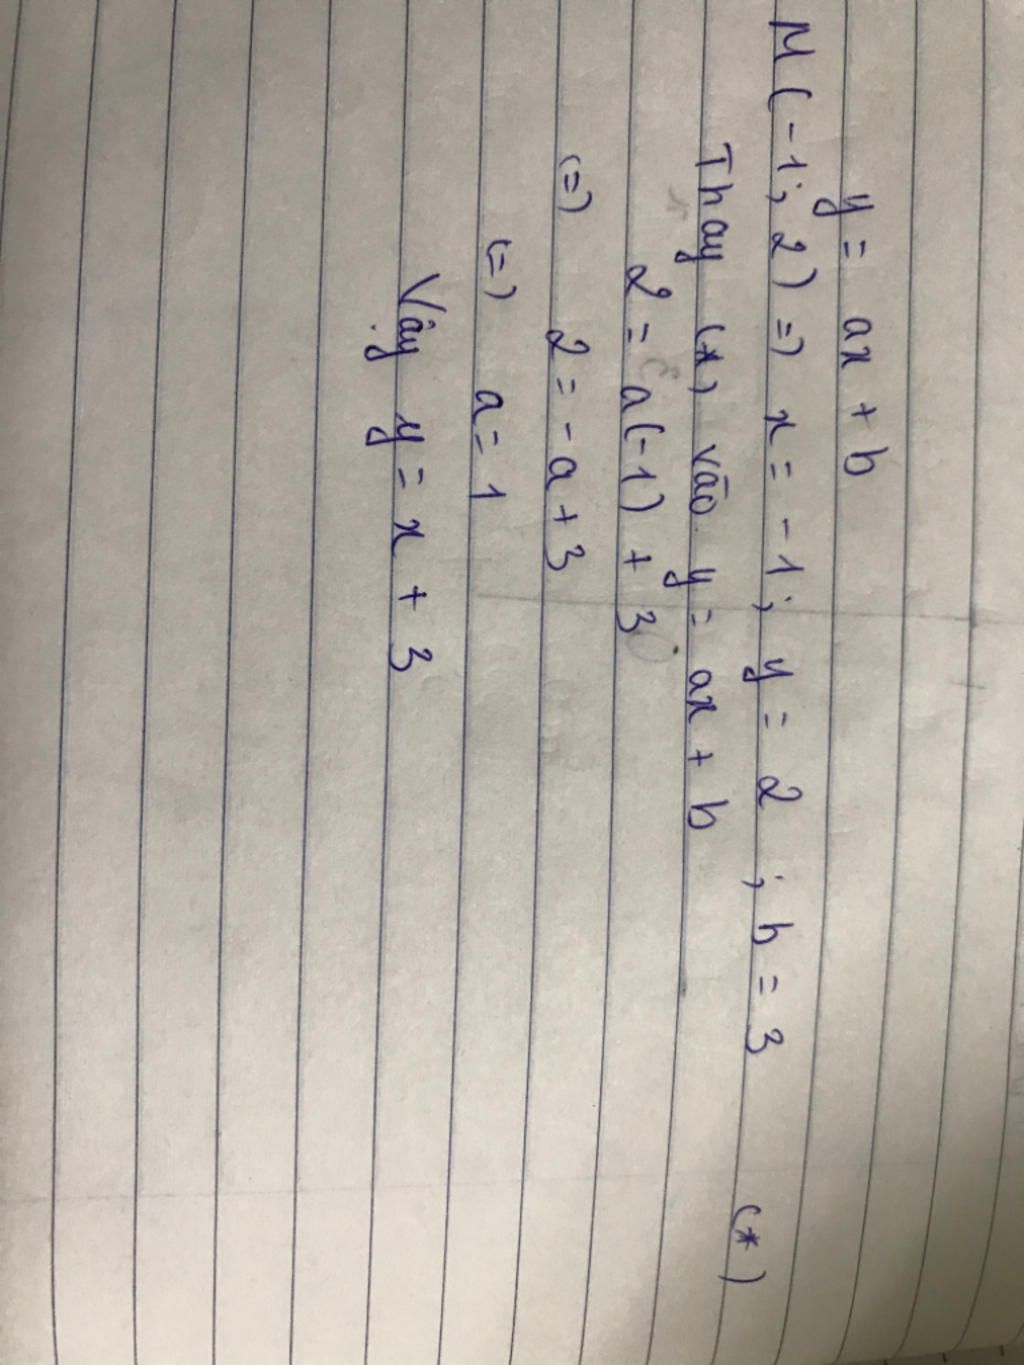 y = ax + b
M (-1; 2) => x = -1; y = 2 ; b = 3 (*)
Thay (*) vào y = ax + b
2 = a(-1) + 3
(=) 2 = -a + 3
(=) a = 1
Vậy y = x + 3